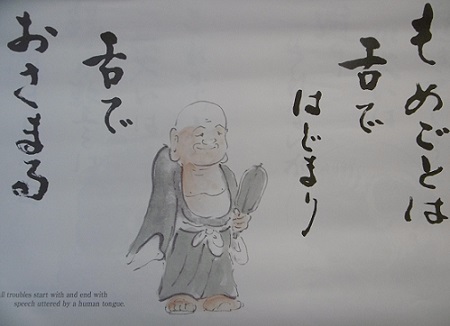 もめごとは
舌で
はじまり
舌で
おさまる
ll troubles start with and end with
speech uttered by a human tongue.